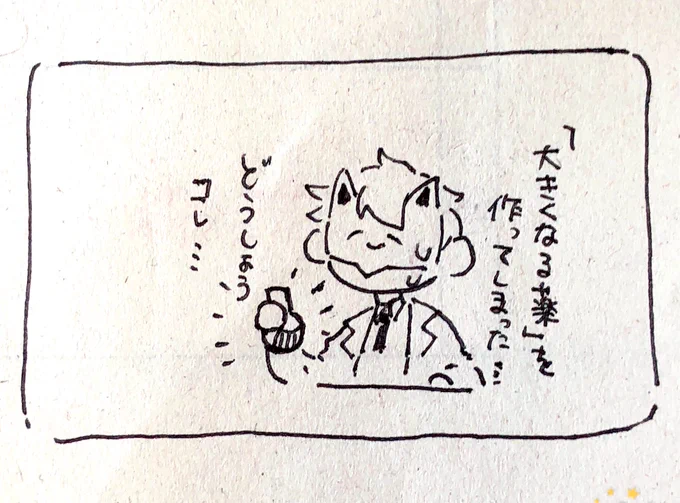 「大きくなる薬」を
作ってしまった…
どうしよう
コレ…